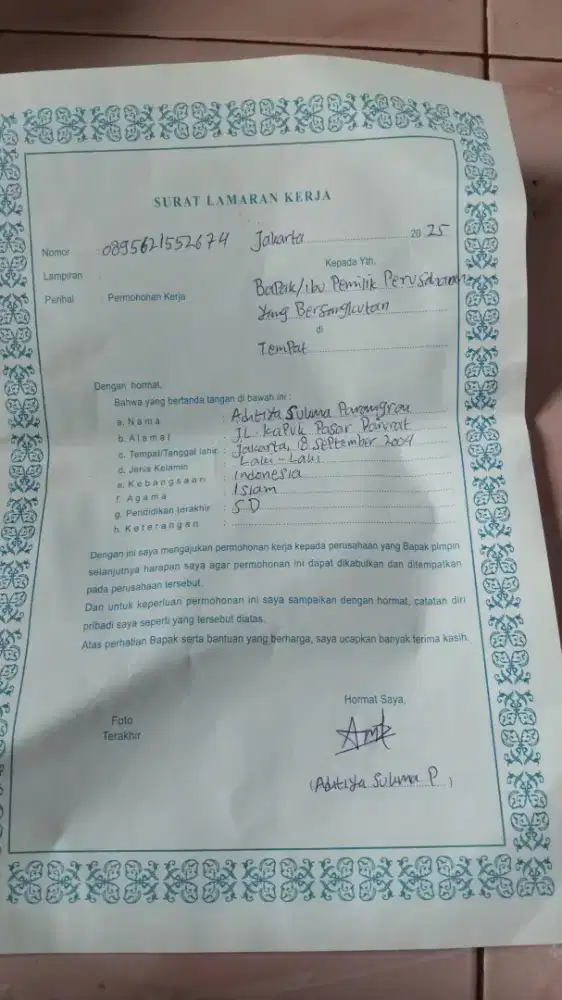 SURAT LAMARAN KERJA
Nomor 0895621552674 Jakarta 2025
Lampiran Kepada Yth.
Perihal : Permohonan Kerja Bapak/ibu Pemilik Perusahaan
yang Bersangkutan
di
Tempat
Dengan hormat,
Bahwa yang bertanda tangan di bawah ini :
a. Nama : Aditiya Sukma
b. Alamat : JL. Kapuk Pasar
c. Tempat/Tanggal lahir : Jakarta, 18 September 2004
d. Jenis Kelamin : Laki-Laki
e. Kebangsaan : Indonesia
f. Agama : Islam
g. Pendidikan terakhir : SD
h. Keterangan :
Dengan ini saya mengajukan permohonan kerja kepada perusahaan yang Bapak pimpin
selanjutnya harapan saya agar permohonan ini dapat dikabulkan dan ditempatkan
pada perusahaan tersebut.
Dan untuk keperluan permohonan ini saya sampaikan dengan hormat, catatan diri
pribadi saya seperti yang tersebut diatas.
Atas perhatian Bapak serta bantuan yang berharga, saya ucapkan banyak terima kasih.
Hormat Saya,
Foto
Terakhir
(Aditiya Sukma P)